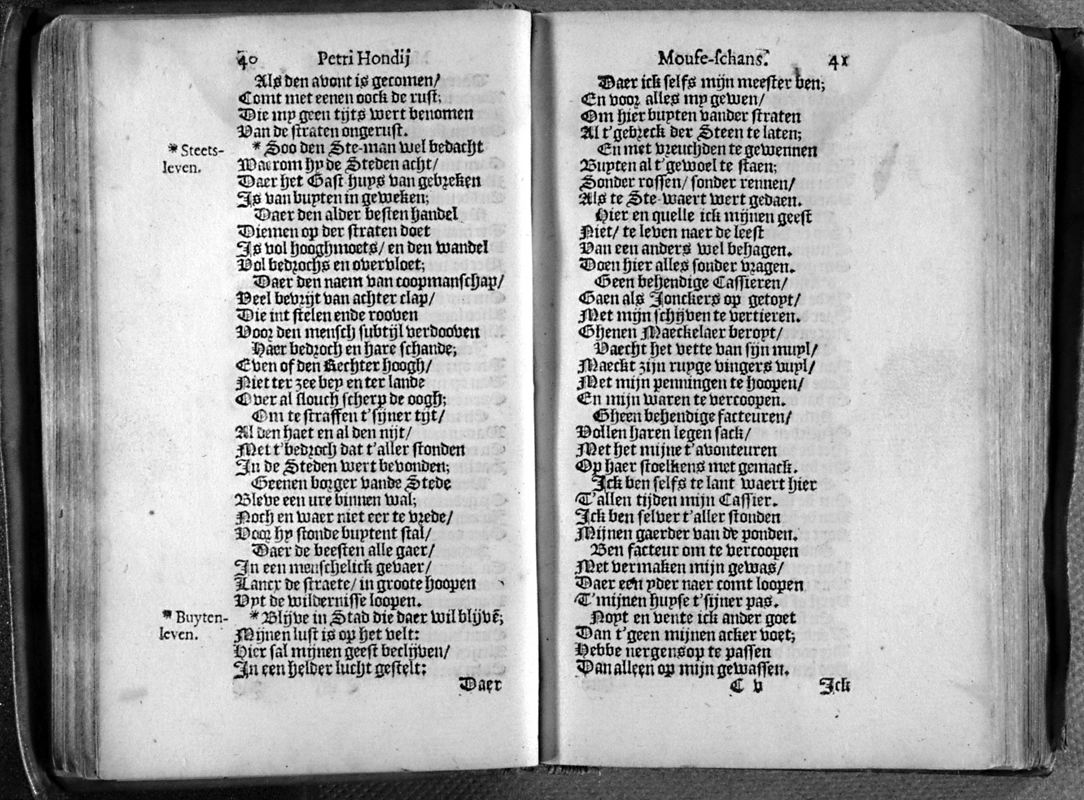 40 Petri Hondij
Als den avont is gecomen/
Comt met eenen oock de rust;
Die my geen tijts wert benomen
Van de straten ongerust.
* Steets-
leven.
* Soo den Ste-man wel bedacht
Waerom hy de Steden acht/
Daer het Gast-huys van gebreken
Is van buyten in geweken;
Daer den alder besten handel
Diemen op der straten doet
Is vol hooghmoets/ en den wandel
Vol bedrochs en overvloet;
Daer den naem van coopmanschap/
Veel bevrijt van achter clap/
Die int stelen ende rooven
Voor den mensch subtijl verdooven
Haer bedroch en hare schande;
Even of den Rechter hoogh/
Niet ter zee bey en ter lande
Over al slouch scherp de oogh;
Om te straffen t'sijner tijt/
Al den haet en al den nijt/
Met t'bedroch dat t'aller stonden
In de Steden wert bevonden;
Geenen borger vande Stede
Bleve een ure binnen wal;
Noch en waer niet eer te vrede/
Voor hy stonde buytent stal/
Daer de beesten alle gaer/
In een menschelick gevaer/
Lancx de straete/ in groote hoopen
Uyt de wildernisse loopen.
* Buyten-
leven.
* Blijve in Stad die daer wil blijvē;
Mijnen lust is op het velt:
Hier sal mijnen geest beclijven/
In een helder lucht gestelt:
Daer
Mouse-schans. 41
Daer ick selfs mijn meester ben;
En voor alles my gewen/
Om hier buyten vander straten
Al t'gebreck der Steen te laten;
En met vreuchden te gewennen
Buyten al t'gewoel te staen;
Sonder rossen/ sonder rennen/
Als te Ste-waert wert gedaen.
Hier en quelle ick mijnen geest
Niet/ te leven naer de leest
Van een anders wel behagen.
Doen hier alles sonder vragen.
Geen behendige Cassieren/
Gaen als Jonckers op getoyt/
Met mijn schijven te vertieren.
Ghenen Maeckelaer beroyt/
Vaecht het vette van sijn muyl/
Maeckt zijn ruyge vingers vuyl/
Met mijn penningen te hoopen/
En mijn waren te vercoopen.
Gheen behendige facteuren/
Vollen haren legen sack/
Met het mijne t'avonteuren
Op haer stoelkens met gemack.
Ick ben selfs te lant waert hier
T'allen tijden mijn Cassier.
Ick ben selver t'aller stonden
Mijnen gaerder van de ponden.
Ben facteur om te vercoopen
Met vermaken mijn gewas/
Daer een yder naer comt loopen
T'mijnen huyse t'sijner pas.
Noyt en vente ick ander goet
Dan t'geen mijnen acker voet;
Hebbe nergensop te passen
Dan alleen op mijn gewassen.
C v Ick